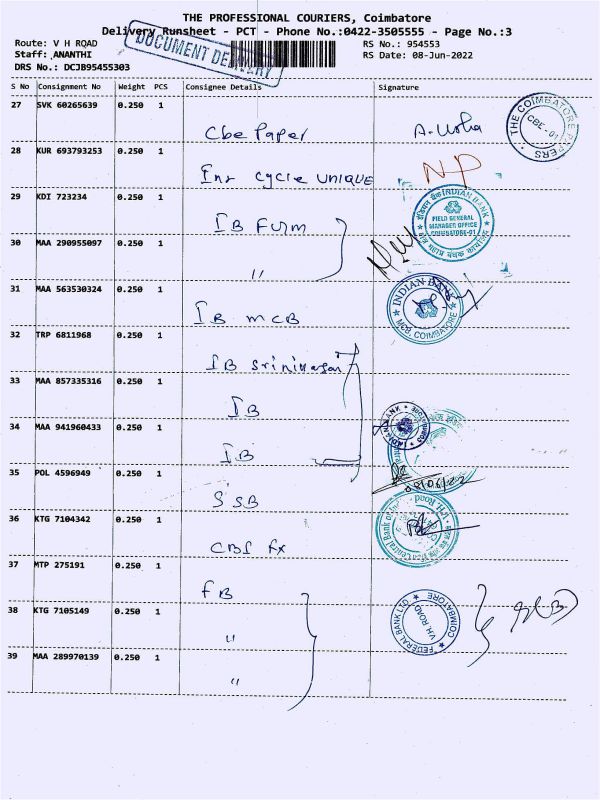 THE PROFESSIONAL COURIERS, Coimbatore
Delivery Runsheet - PCT - Phone No.:0422-3505555 - Page No.:3
Route: V H ROAD RS No.: 954553
Staff: ANANTHI RS Date: 08-Jun-2022
DRS No.: DCJB95455303
DOCUMENT DELIVERY
S No Consignment No Weight PCS Consignee Details Signature
27 SVK 60265639 0.250 1
Cbe Paper A. Usha
THE COIMBATORE PAPERS CBE-01
28 KUR 693793253 0.250 1
cycle UNIQUE NP
29 KDI 723234 0.250 1
IB
INDIAN BANK
FIELD GENERAL
MANAGER OFFICE
COIMBATORE-01
30 MAA 290955097 0.250 1
"
31 MAA 563530324 0.250 1
IB MCB
INDIAN BANK
MCB, COIMBATORE
32 TRP 6811968 0.250 1
IB Srinivasan
33 MAA 857335316 0.250 1
IB
34 MAA 941960433 0.250 1
IB
INDIAN BANK
35 POL 4596949 0.250 1
SSB 08/06/22
36 KTG 7104342 0.250 1
CBI fx
Central Bank of
37 MTP 275191 0.250 1
FB
38 KTG 7105149 0.250 1
"
FEDERAL BANK LTD.
V.H. ROAD
COIMBATORE
39 MAA 289970139 0.250 1
"